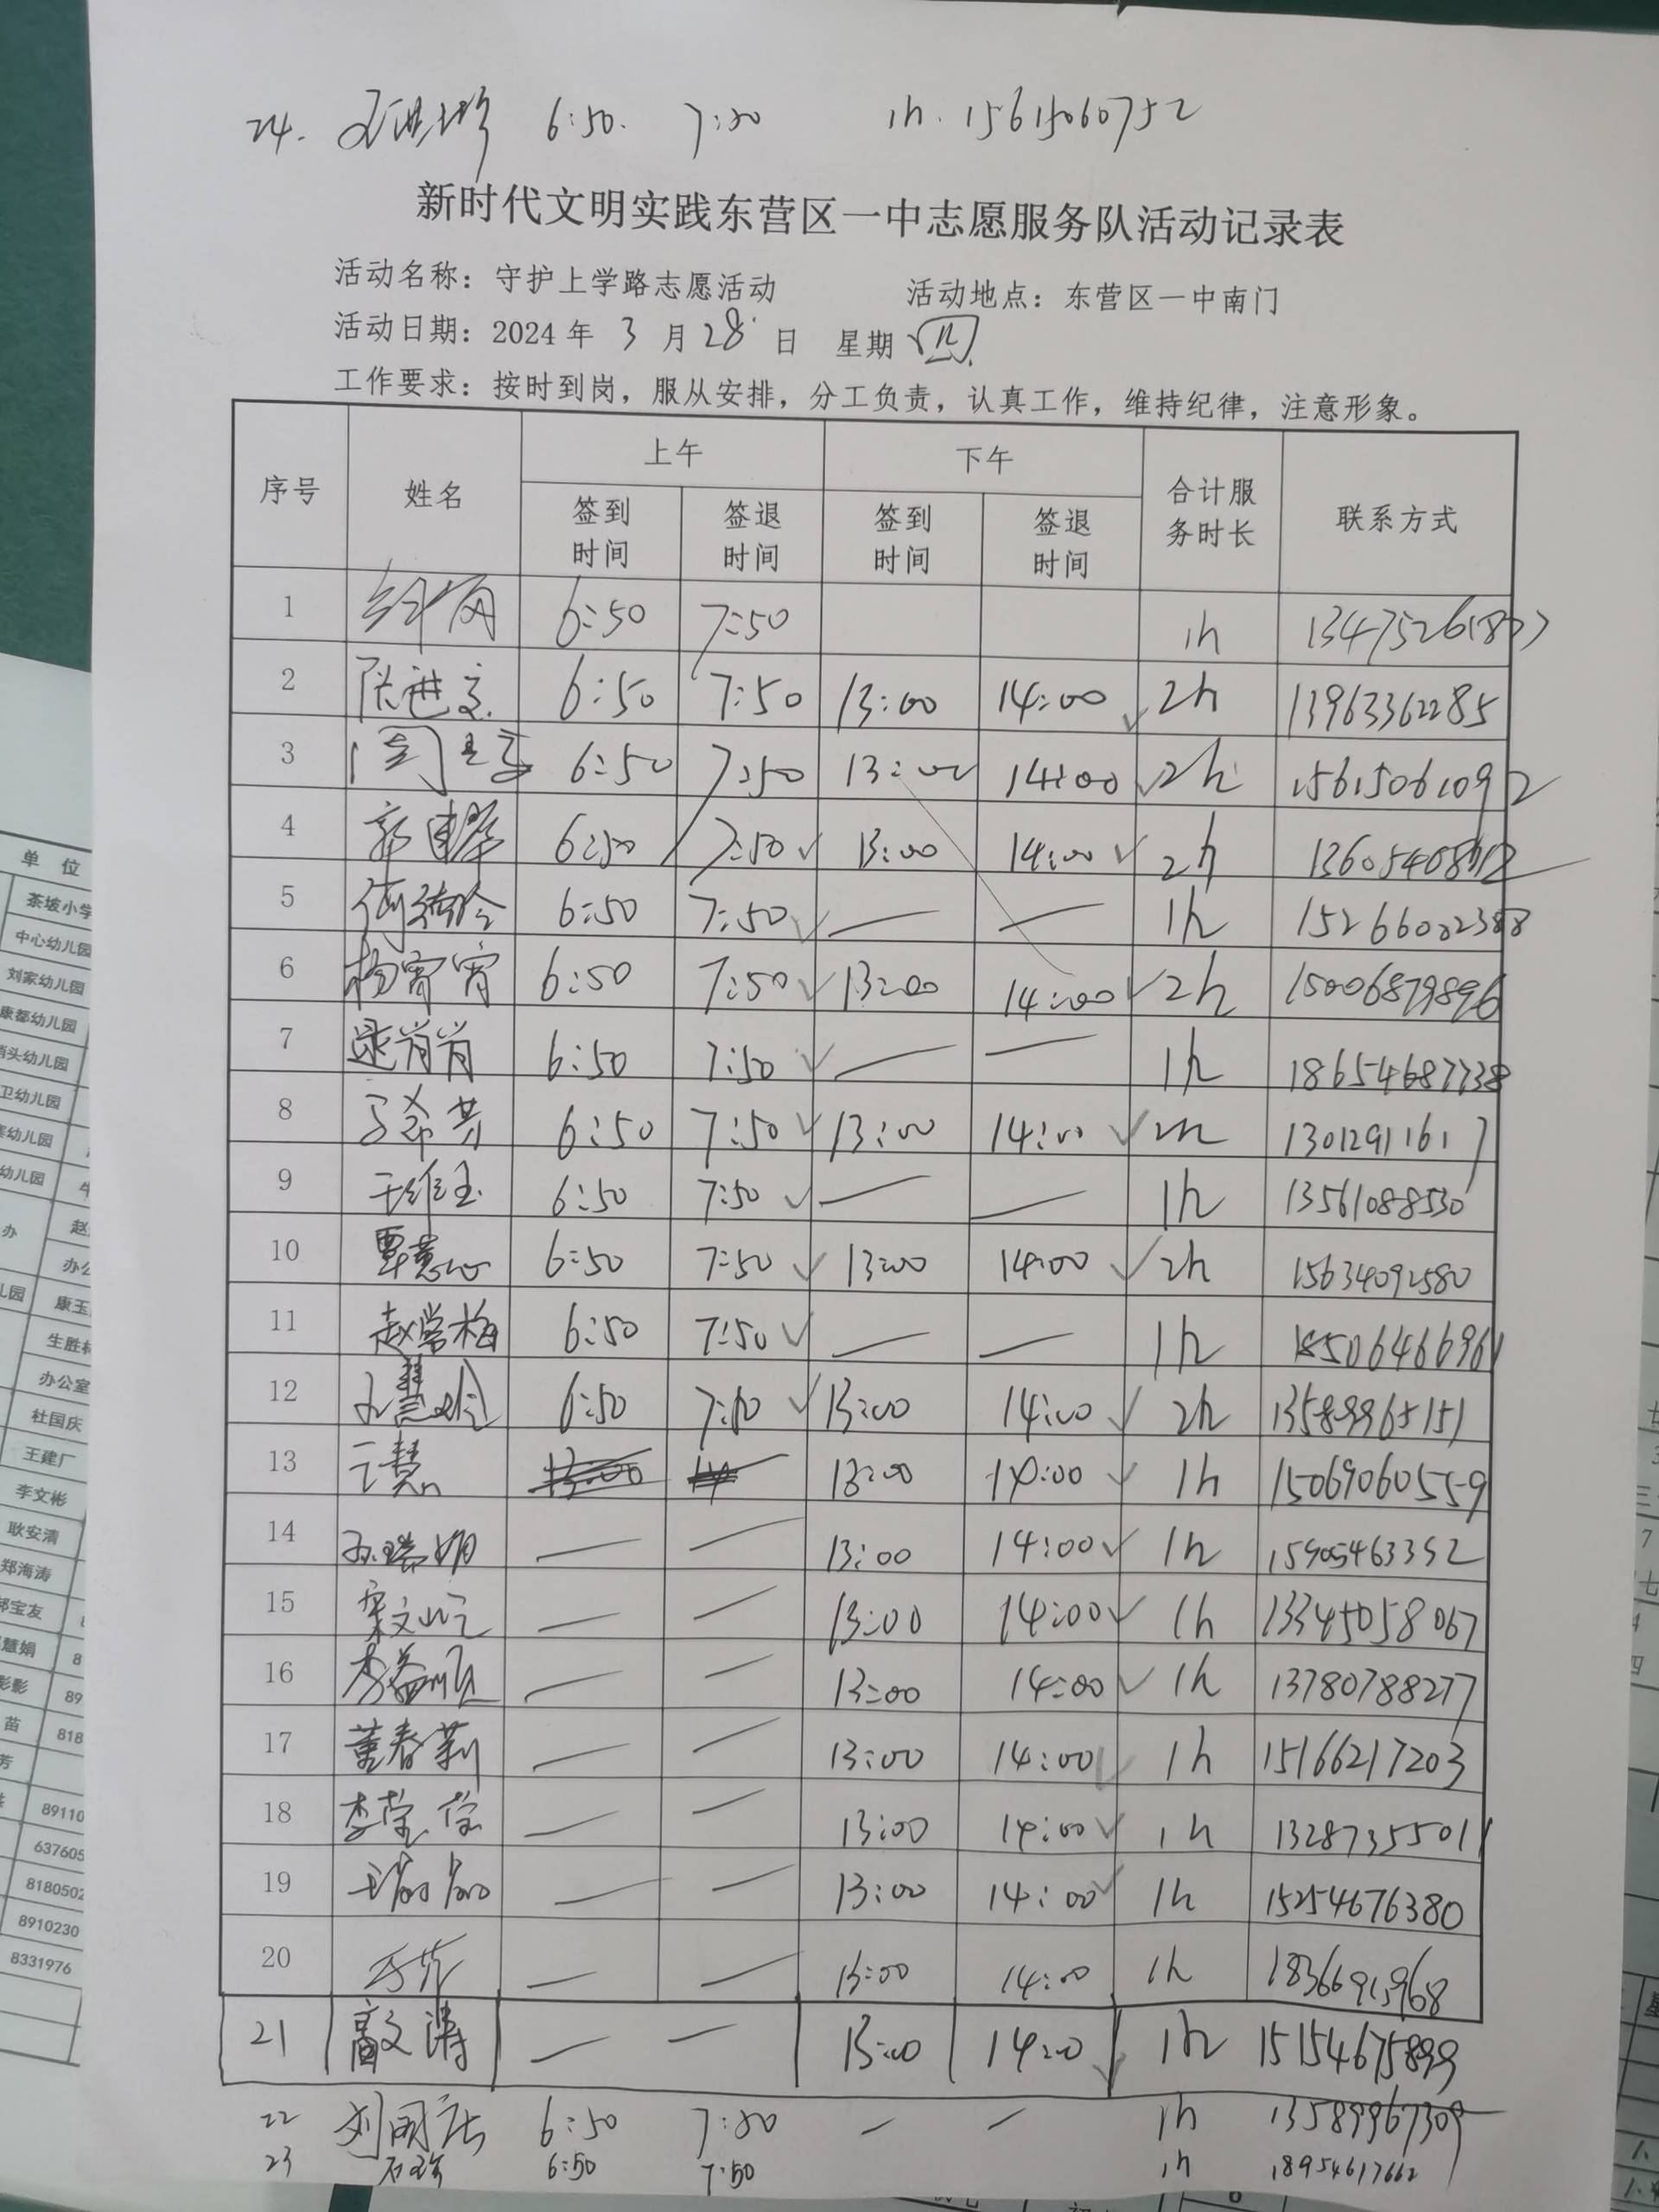 24. 6:50. 7:50 1h. 15615060752
新时代文明实践东营区一中志愿服务队活动记录表
活动名称：守护上学路志愿活动 活动地点：东营区一中南门
活动日期：2024年 3 月 28 日 星期 四
工作要求：按时到岗，服从安排，分工负责，认真工作，维持纪律，注意形象。
序号 姓名 上午 下午 合计服务时长 联系方式
签到时间 签退时间 签到时间 签退时间
1 6:50 7:50 1h
2 张进文 6:50 7:50 13:00 14:00 2h 13963362285
3 6:50 7:50 13:00 14:00 2h 15615061092
4 郭建华 6:50 7:50 13:00 14:00 2h
5 6:50 7:50 — — 1h 15266002388
6 杨宵宵 6:50 7:50 13:00 14:00 2h 15006879896
7 逯肖肖 6:50 7:50 — — 1h 18654687738
8 6:50 7:50 13:00 14:00 2h 13012911617
9 王维玉 6:50 7:50 — — 1h 13561088530
10 覃慧心 6:50 7:50 13:00 14:00 2h 15634092580
11 赵常梅 6:50 7:50 — — 1h 18506466961
12 孙慧玲 6:50 7:50 13:00 14:00 2h 13589965151
13 王慧 13:00 14:00 1h 15069060559
14 孙瑞娟 — — 13:00 14:00 1h 15905463352
15 — — 13:00 14:00 1h 13345058067
16 — — 13:00 14:00 1h 13780788277
17 董春莉 — — 13:00 14:00 1h 15166217203
18 — — 13:00 14:00 1h 13287355011
19 — — 13:00 14:00 1h 15254676380
20 — — 13:00 14:00 1h
21 高文涛 — — 13:00 14:00 1h 15154675899
22 刘国庆 6:50 7:50 — — 1h 13589967309
23 6:50 7:50 1h 18954617662
单 位
茶坡小学
中心幼儿园
刘家幼儿园
康都幼儿园
卫幼儿园
幼儿园
办公室
杜国庆
王建厂
李文彬
耿安清
郑海涛
宝友
慧娟
89110
637605
8180502
8910230
8331976